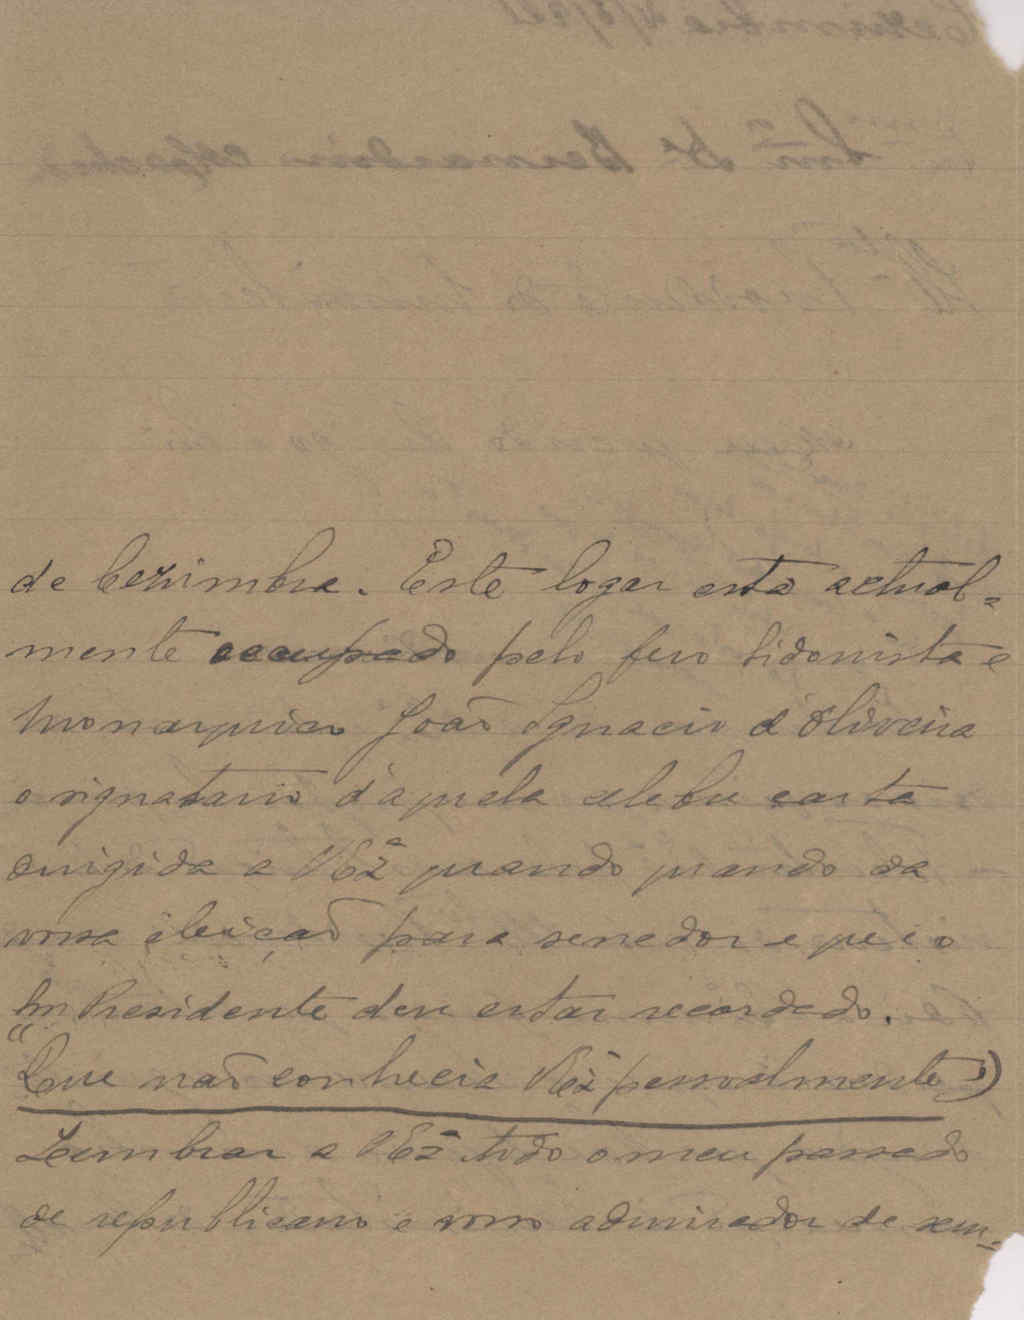 de Cezimbra. Este logar está actual-
mente occupado pelo fero sidonista e
monarquico João Ignacio d'Oliveira
o signatario d'aquela celebre carta
dirigida a V Exª quando quando da
vossa eleição para senador e que o
Snr Presidente deve estar recordado.
"Que não conhecia V Exª pessoalmente")
Lembrar a V Exª todo o meu passado
de republicano e vosso admirador de sem-